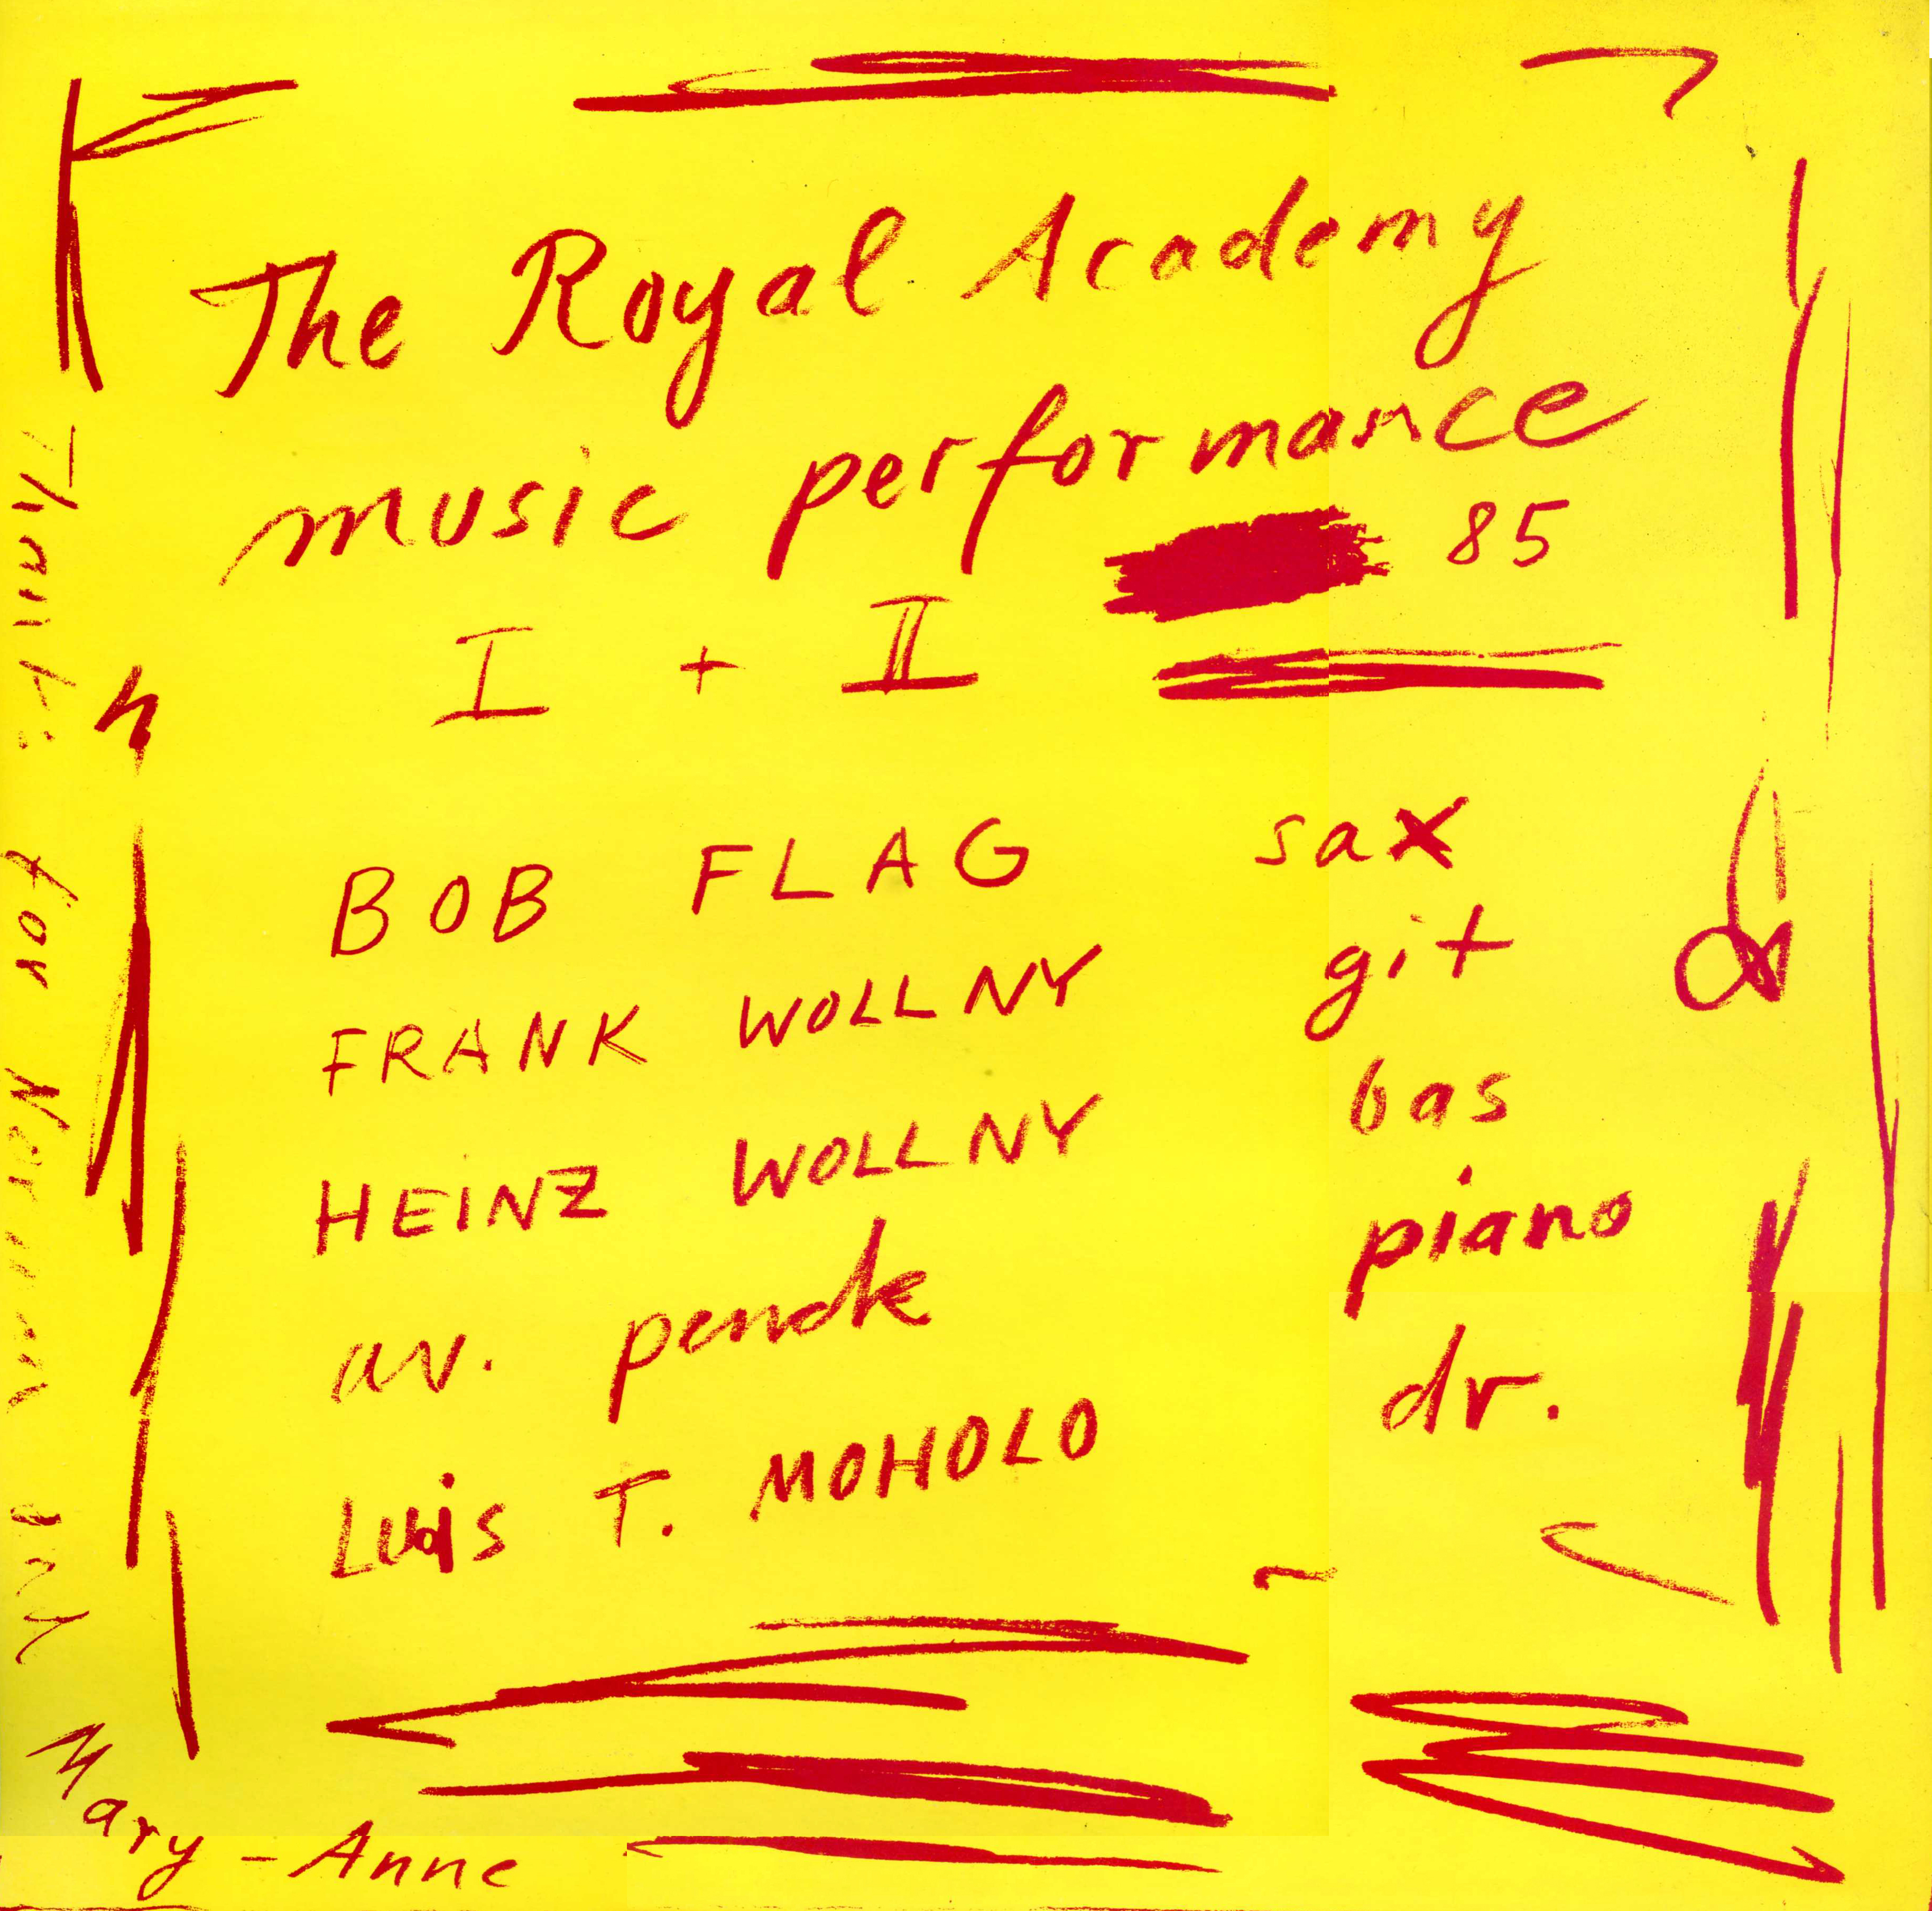 The Royal Academy
music performance
85
I + II
BOB FLAG sax
FRANK WOLLNY git
HEINZ WOLLNY bas
av. penck piano
Luis T. MOHOLO dr.
Thanks for Norman and
Mary-Anne